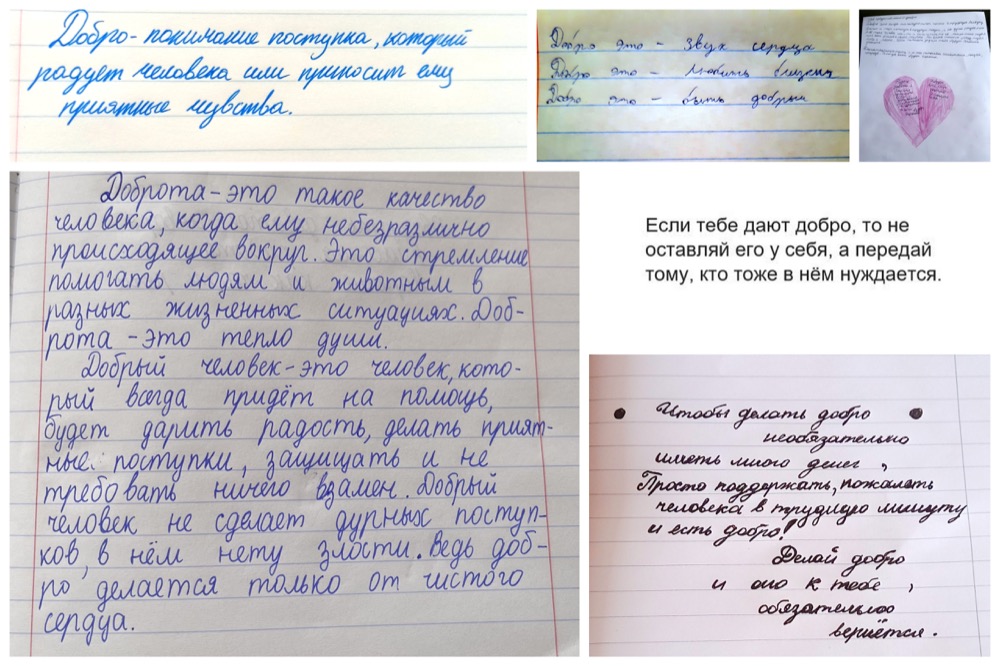 Добро - понимание поступка, который
радует человека или приносит ему
приятные чувства.
Добро это - звук сердца
Добро это - любить близких
Добро это - быть добрым
Доброта - это такое качество
человека, когда ему небезразлично
происходящее вокруг. Это стремление
помогать людям и животным в
разных жизненных ситуациях. Доб-
рота - это тепло души.
Добрый человек - это человек, кото-
рый всегда придёт на помощь,
будет дарить радость, делать прият-
ные поступки, защищать и не
требовать ничего взамен. Добрый
человек не сделает дурных поступ-
ков, в нём нету злости. Ведь доб-
ро делается только от чистого
сердца.
Если тебе дают добро, то не
оставляй его у себя, а передай
тому, кто тоже в нём нуждается.
Чтобы делать добро
необязательно
иметь много денег,
Просто поддержать, пожалеть
человека в трудную минуту
и есть добро!
Делай добро
и оно к тебе,
обязательно
вернётся.